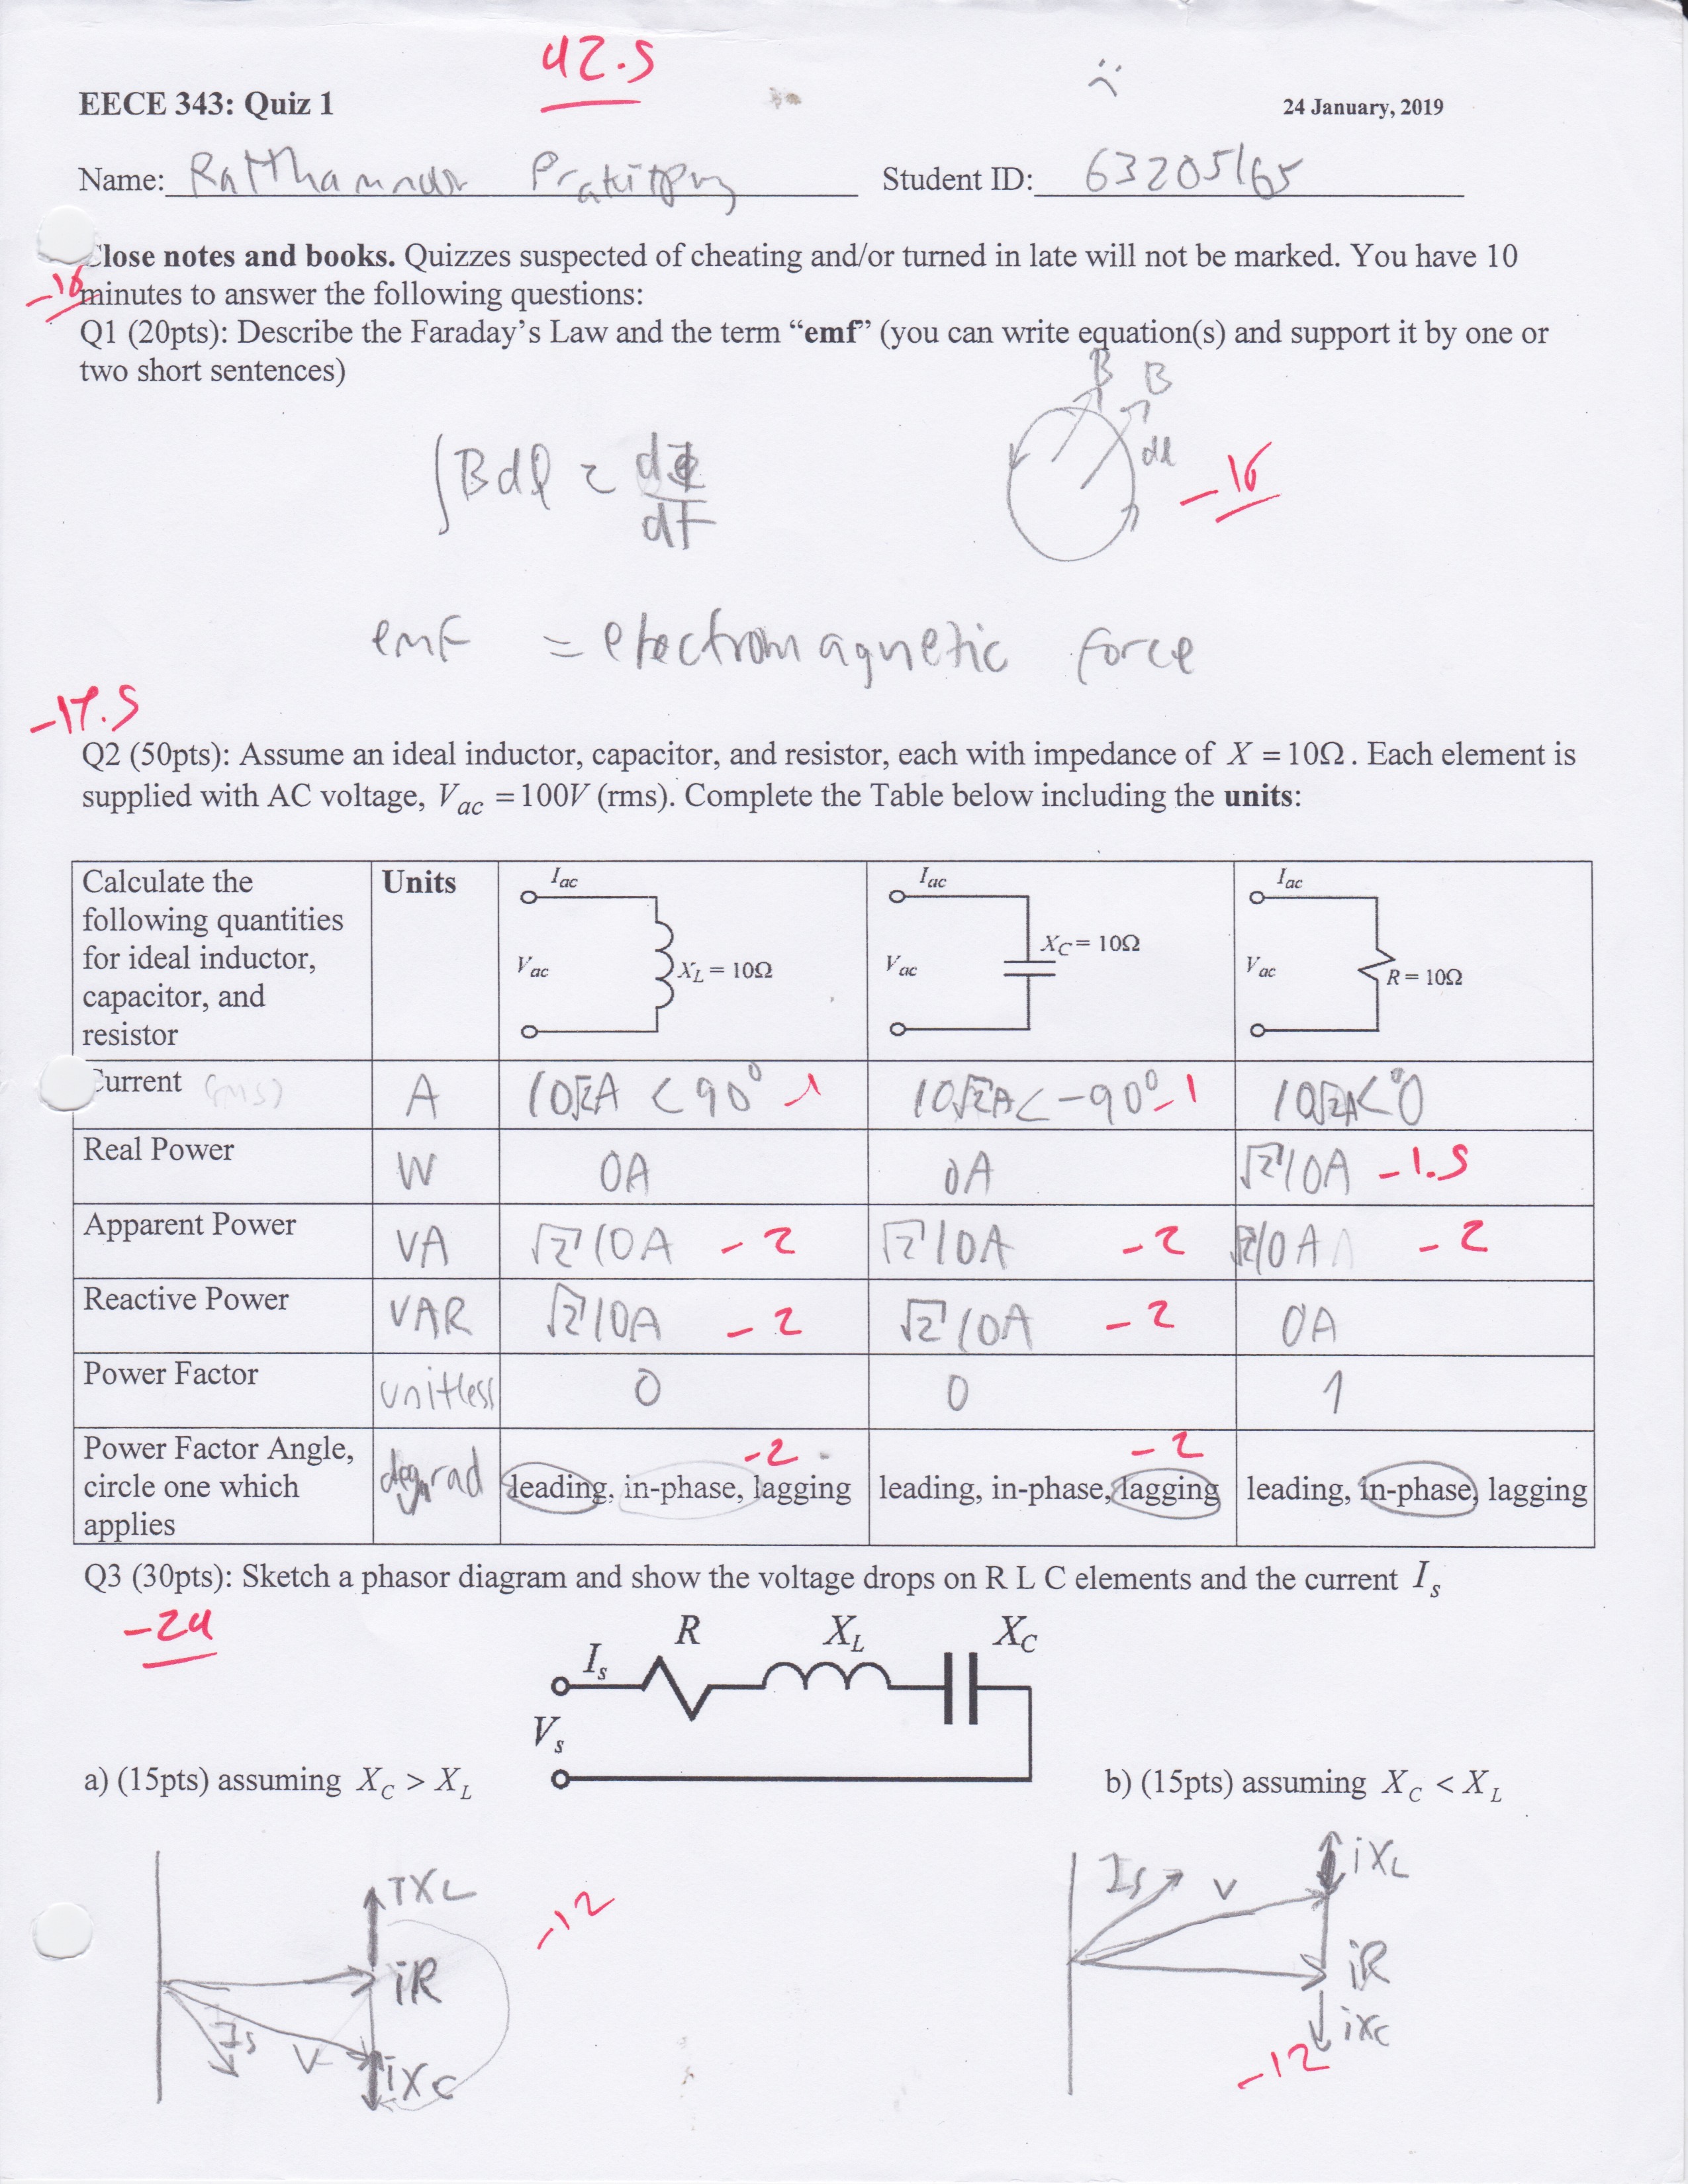 42.5
EECE 343: Quiz 1
24 January, 2019
Name: Student ID: 63205165
Close notes and books. Quizzes suspected of cheating and/or turned in late will not be marked. You have 10
-16
minutes to answer the following questions:
Q1 (20pts): Describe the Faraday's Law and the term “emf” (you can write equation(s) and support it by one or
two short sentences)
B B
∫Bdl = dΦ/dt
dl
-16
emf = electromagnetic force
-17.5
Q2 (50pts): Assume an ideal inductor, capacitor, and resistor, each with impedance of X = 10Ω. Each element is
supplied with AC voltage, Vac = 100V (rms). Complete the Table below including the units:
Calculate the following quantities for ideal inductor, capacitor, and resistor
Units
Iac Vac XL = 10Ω
Iac Vac XC = 10Ω
Iac Vac R = 10Ω
Current (rms) A 10√2A <90° -1 10√2A<-90° -1 10√2A<°0
Real Power W 0A 0A √2 10A -1.5
Apparent Power VA √2 10A -2 √2 10A -2 √2 10A -2
Reactive Power VAR √2 10A -2 √2 10A -2 0A
Power Factor unitless 0 0 1
Power Factor Angle, circle one which applies
deg, rad
-2
leading, in-phase, lagging
-2
leading, in-phase, lagging
leading, in-phase, lagging
Q3 (30pts): Sketch a phasor diagram and show the voltage drops on R L C elements and the current Is
-24
R XL XC
Is
Vs
a) (15pts) assuming XC > XL
b) (15pts) assuming XC < XL
IXL
-12
iR
Is
V
iXC
iXL
Is V
iR
iXC
-12